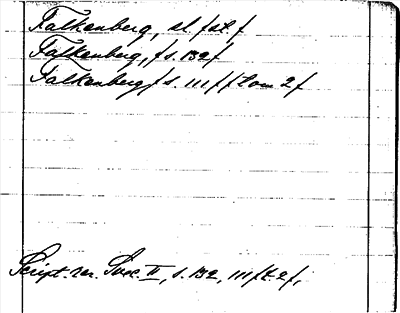 Falkenberg, sl. f st. f
Falkenberg, f s. 132 f
Falkenberg f s. 111 f f tom 2 f
Script. rer. Suec. II, s. 132, 111 f t. 2 f,